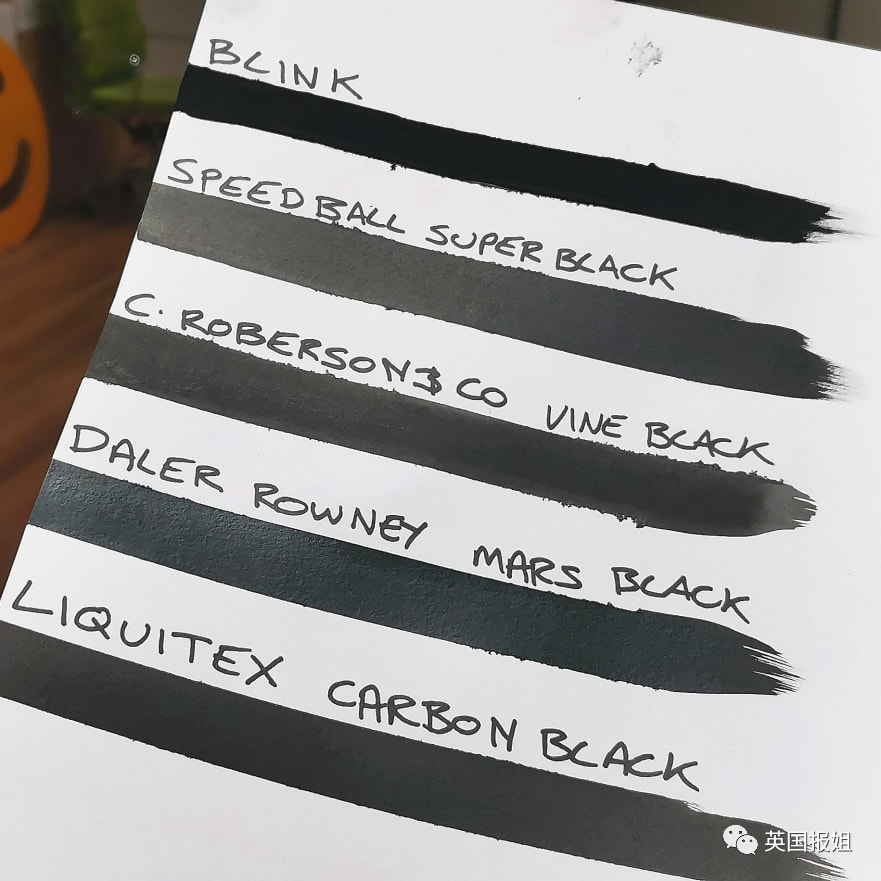 BLINK
SPEEDBALL SUPER BLACK
C. ROBERSON & CO VINE BLACK
DALER ROWNEY MARS BLACK
LIQUITEX CARBON BLACK
英国报姐